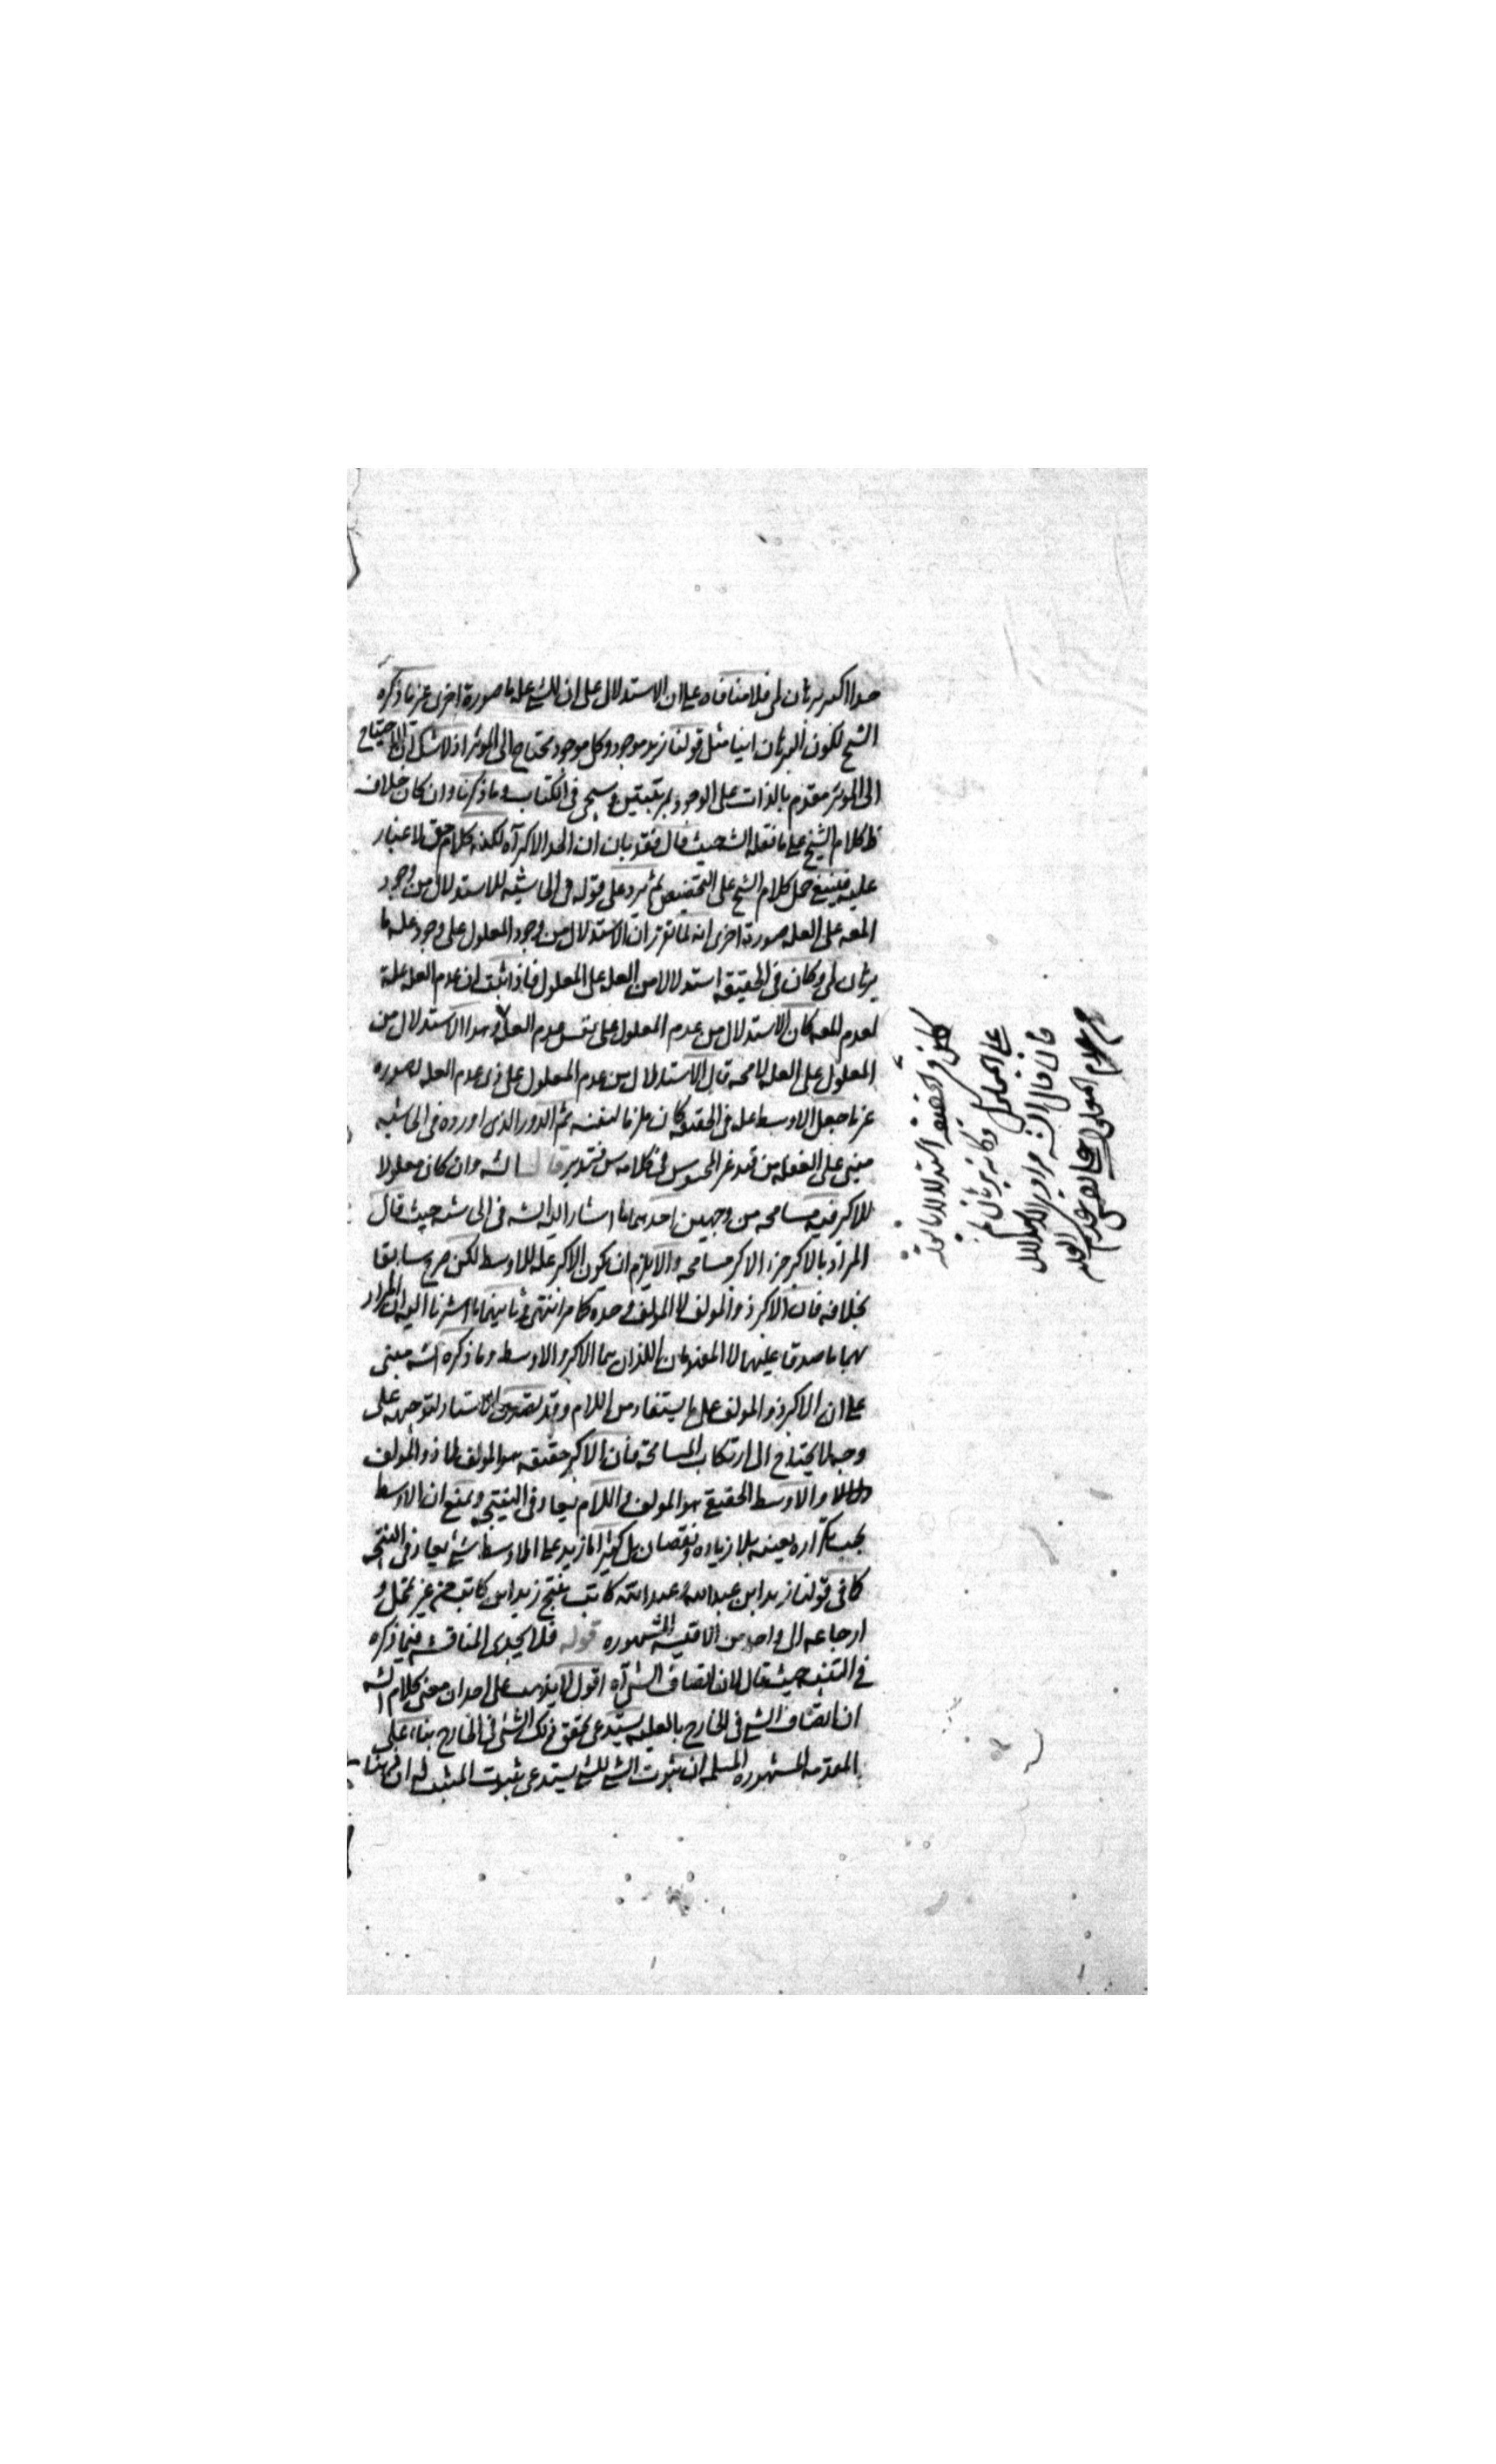 حدا اكبر برهان لمى فلا منافاه على ان الاستدلال على ان للشئ عله ما صورة اخرى غير ما ذكره
الشيخ لكون البرهان انيا مثل قولنا زيد موجود وكل موجود محتاج الى المؤثر اذ لا شك ان الاحتياج
الى المؤثر مقدم بالذات على الوجود بمرتبتين وسيجى فى الكتاب وما ذكرنا وان كان خلاف
ظ كلام الشيخ على ما نقله الشه حيث قال فقد بان ان الحد الاكبر آه لكنه كلام حق لا غبار
عليه فينبغى حمل كلام الشيخ على التخصيص ثم يرد على قوله فى الحاشيه للاستدلال من وجود
المعه على العله صورة اخرى انه لما تقرر ان الاستدلال من وجود المعلول على وجود عله ما
برهان لمى وكان فى الحقيقه استدلالا من العله على المعلول فاذا ثبت ان عدم العله علة
لعدم المعه كان الاستدلال من عدم المعلول على نفس عدم العله وهذا الاستدلال من
المعلول على العله لا محه قال الاستدلال من عدم المعلول على ذى عدم العله لصوره
غير ما جعل الاوسط عله فى الحقيقه كان ملزما لنفسه ثم الدور الذى اورده فى الحاشيه
مبنى على الغفله من قيد غير المحسوس فى كلامه س فتدبر قال الشه وان كان معلولا
للاكبر فيه مسامحه من وجهين احدهما ما اشار اليه الشه فى الحاشيه حيث قال
المراد بالاكبر جزء الاكبر مسامحه والا يلزم ان يكون الاكبر عله للاوسط لكن صرح سابقا
بخلافه فان الاكبر ذو المولف لا المولف وحده كما مر انتهى وثانيهما ما اشرنا اليه ان المراد
بهما ما صدقا عليهما لا المفهومان اللذان هما الاكبر والاوسط وما ذكره الشه مبنى
على ان الاكبر ذو المولف على ما يستفاد من اللام وقد تصدى الاستاد لتوجيهه على
وجه لا يحتاج الى ارتكاب المسامحة فان الاكبر حقيقه هو المولف لا ذو المولف
والاوسط الحقيقى هو المولف فى اللام يعاد فى النتيجه ويمنع ان الاوسط
يجب تكراره بعينه بلا زياده ونقصان بل كثيرا ما زيد على الاوسط شئ يعاد فى النتيجه
كما فى قولنا زيد ابن عبدالله وعبدالله كاتب ينتج زيد ابن كاتب من غير تمحل و
ارجاعه الى واحد من الاقيسه المشهوره قوله فلا يجدى المناقشه فيما ذكره
فى التنبيه حيث قال لان اتصاف الشئ آه اقول لا يذهب على احد ان معنى كلام الشه
ان اتصاف الشئ فى الخارج بالعليه يستدعى تحقق ذلك الشئ فى الخارج بناء على
المقدمه المشهوره المسلمه ان ثبوت الشئ للشئ يستدعى ثبوت المثبت له ان ههنا
لكن فى الحقيقه استدلالا بالعلة
على المعلول فكانه برهان لم
فان قال الشه مراده الاستدلال
من عدم المعلول على نفس عدم العله